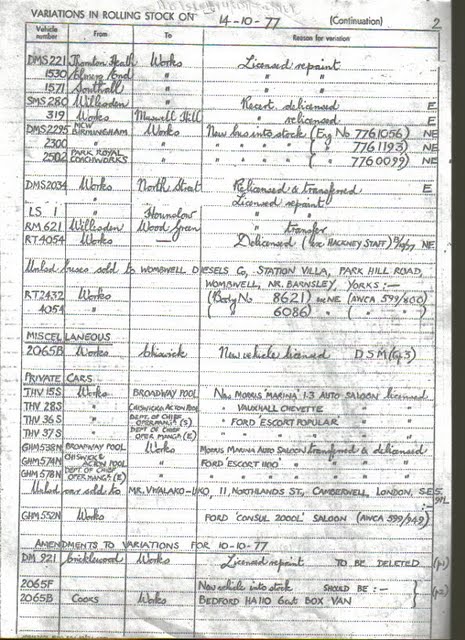 VARIATIONS IN ROLLING STOCK ON 14-10-77 (Continuation) 2
Vehicle number From To Reason for variation
DMS 221 Thornton Heath Works Licensed repaint
1530 Elmers End " " "
1571 Southall " " "
SMS 280 Willesden " Recert. delicensed E
319 Works Muswell Hill " relicensed E
DMS2295 NEW BIRMINGHAM Works New bus into stock (Eng No 7761056) NE
2300 " " " " " " ( " 7761193) NE
2502 PARK ROYAL COACHWORKS " " " " " ( " 7760099) NE
DMS2034 Works North Street Relicensed & transferred E
Licensed repaint
LS 1 " Hounslow " "
RM 621 Willesden Wood Green " transfer
RT4054 Works — Delicensed (ex HACKNEY STAFF) NE
Unlsd buses sold to WOMBWELL DIESELS Co, STATION VILLA, PARK HILL ROAD,
WOMBWELL, NR. BARNSLEY, YORKS :—
RT2432 Works (Body No 8621) NE (AWCA 599/800)
4054 " ( " 6086) " ( " )
MISCELLANEOUS
2065B Works Chiswick New vehicle licensed DSM(Gp3)
PRIVATE CARS
THV 15S Works BROADWAY POOL New MORRIS MARINA 1·3 AUTO SALOON licensed
THV 28S " CHISWICK & ACTON POOL " VAUXHALL CHEVETTE " "
THV 36S " DEPT. OF CHIEF OPER. MANGR (S) " FORD ESCORT POPULAR " "
THV 37S " DEPT OF CHIEF OPER MANGR (E) " " " "
GHM 538N BROADWAY POOL Works MORRIS MARINA AUTO SALOON transferred & delicensed
GHM 574N CHISWICK & ACTON POOL " FORD ESCORT 1100 " " "
GHM 578N DEPT OF CHIEF OPER MANGR (E) " " " " "
Unlsd car sold to MR. 11, NORTHLANDS ST., CAMBERWELL, LONDON, SE5
GHM 552N Works FORD 'CONSUL 2000L' SALOON (AWCA 599/949)
AMENDMENTS TO VARIATIONS FOR 10-10-77
DM 921 Cricklewood Works Licensed repaint TO BE DELETED (p1)
2065F New vehicle into stock SHOULD BE :—
2065B COOKS Works BEDFORD HA110 6cwt BOX VAN (p2)